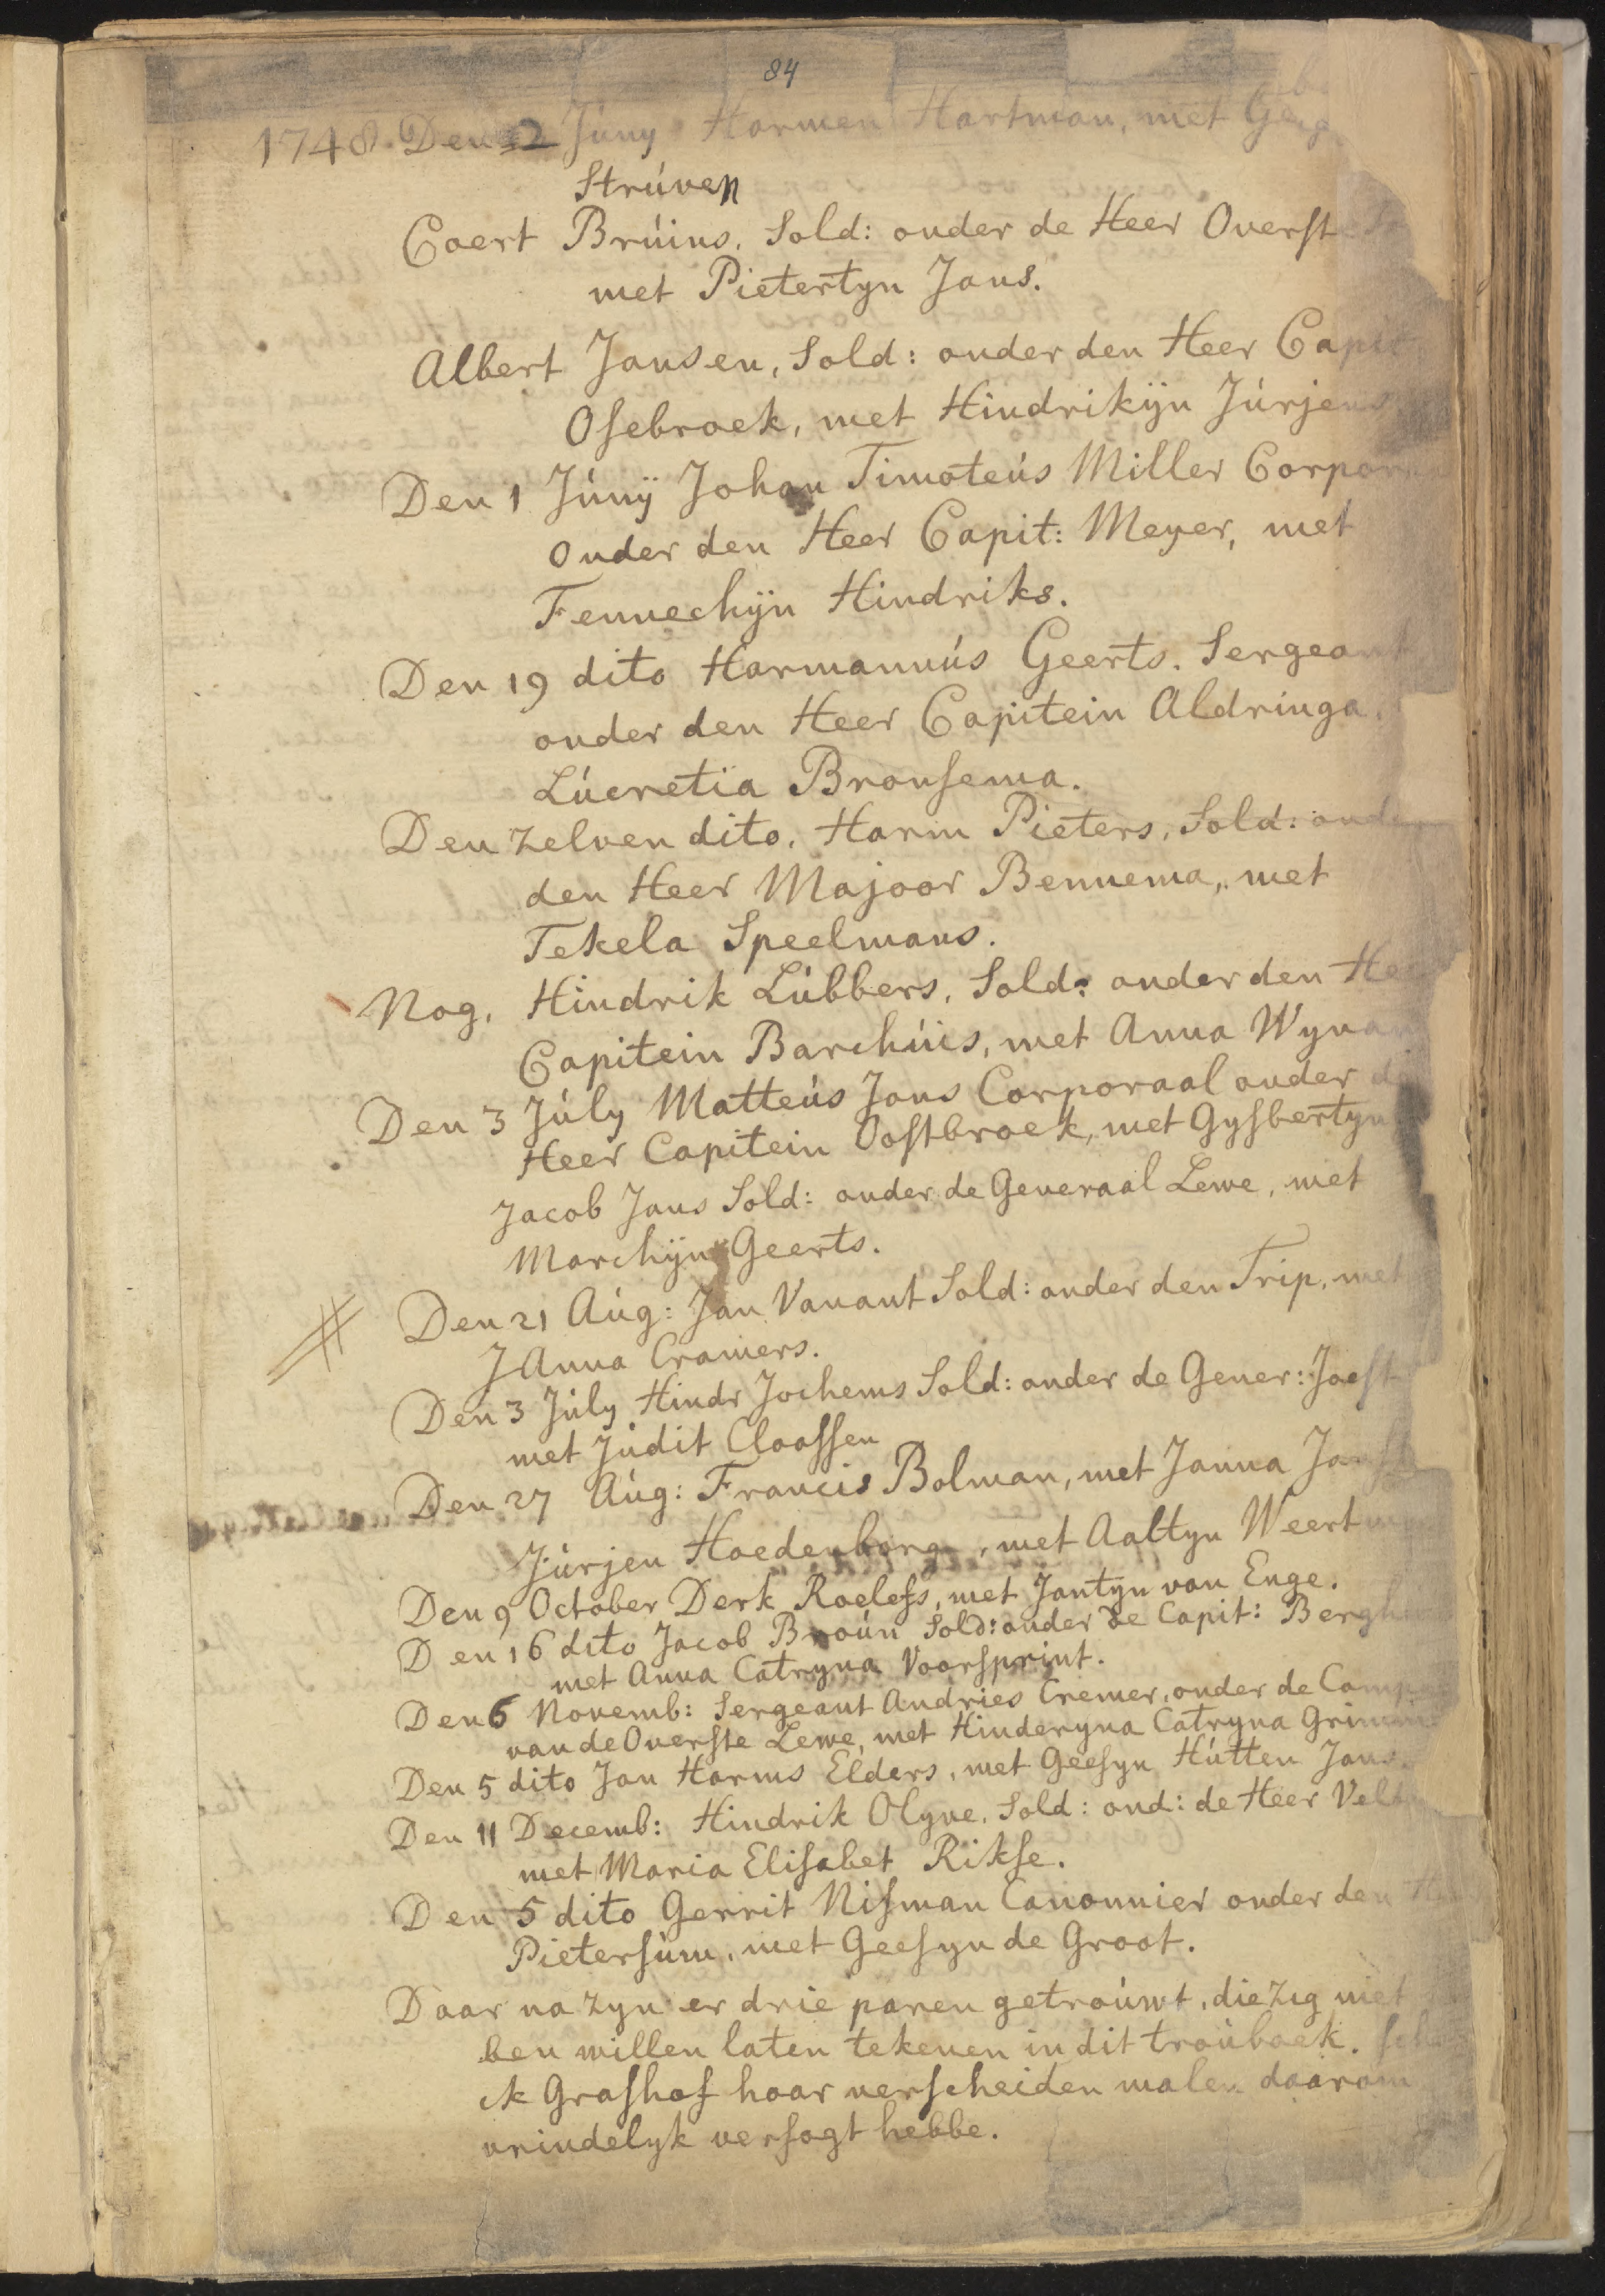 84
1748. Den 2 Júny Harmen Hartman, met
Strúven
Coert Brúins, Sold: onder de Heer Overste
met Pietertyn Jans.
Albert Jansen, Sold: onder den Heer Capit
Osebroek, met Hindrikijn Júrjens
Den 1 Júnÿ Johan Timoteús Miller Corpora
onder den Heer Capit: Meyer, met
Fennechijn Hindriks.
Den 19 dito Harmannús Geerts. Sergeant
onder den Heer Capitein Aldringa,
Lúcretia Bronsema.
Den zelven dito, Harm Pieters, Sold: onder
den Heer Majoor Bennema, met
Tekela Speelmans.
Nog, Hindrik Lúbbers, Sold: onder den Hee
Capitein Barchúis, met Anna Wynan
Den 3 Júly Matteús Jans Corporaal onder de
Heer Capitein Oostbroek, met Gysbertyn
Jacob Jans Sold: onder de Generaal Lewe, met
Marchijn Geerts.
Den 21 Aúg: Jan Vanant Sold: onder den Trip, met
JAnna Cramers.
Den 3 Júly Hindr Jochems Sold: onder de Gener: Joest
met Júdit Claassen
Den 27 Aúg: Francis Bolman, met Janna Jans
Júrjen Hoedenborg, met Aaltyn Weert
Den 9 October Derk Roelefs, met Jantyn van Enge.
Den 16 dito Jacob Broún Sold: onder de Capit: Bergh
met Anna Catryna Voorsprint.
Den 6 Novemb: Sergeant Andries Cremer, onder de Comp
van de Overste Lewe, met Hinderyna Catryna Grimm
Den 5 dito Jan Harms Elders, met Geesyn Hútten Jans.
Den 11 Decemb: Hindrik Olyve, Sold: ond: de Heer Velt
met Maria Elisabet Rikse.
Den 5 dito Gerrit Nisman Canonnier onder den
Pietersúm, met Geesyn de Groot.
Daar na zyn er drie paren getroúwt, die zig niet
ben willen laten tekenen in dit troúboek. sch
ik Grashof haar verscheiden malen daarom
vrindelyk versogt hebbe.